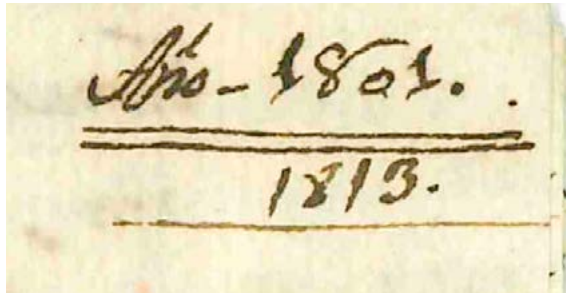 Año - 1801.
1813.